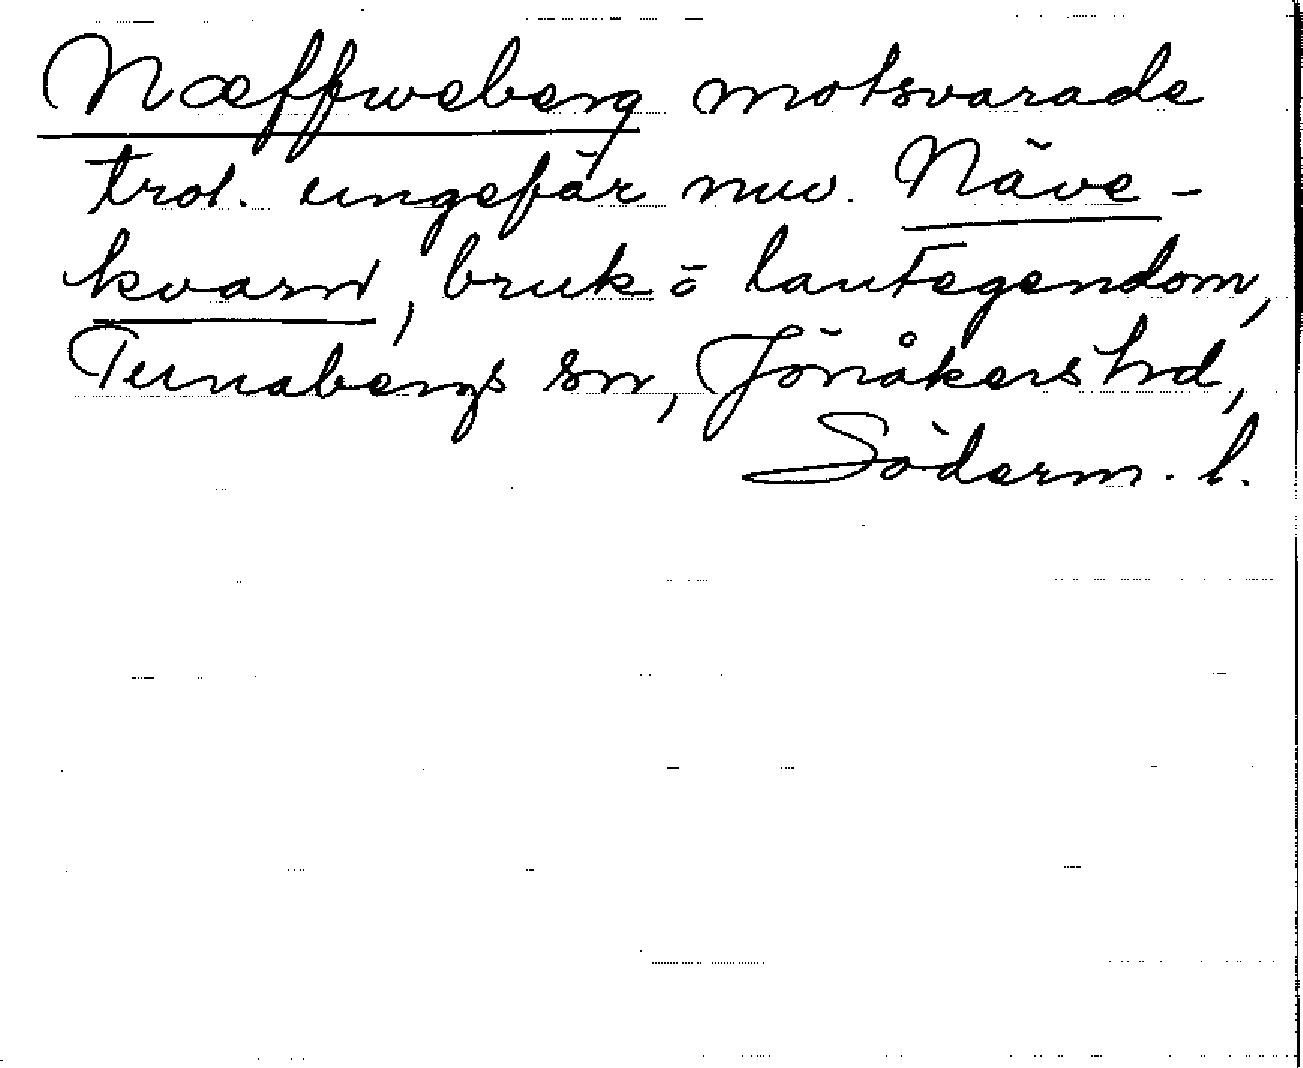 Næffweberg motsvarade
trol. ungefär nuv. Näve-
kvarn, bruk o lantegendom,
Tunabergs sn, Jönåkers hd,
Söderm. l.